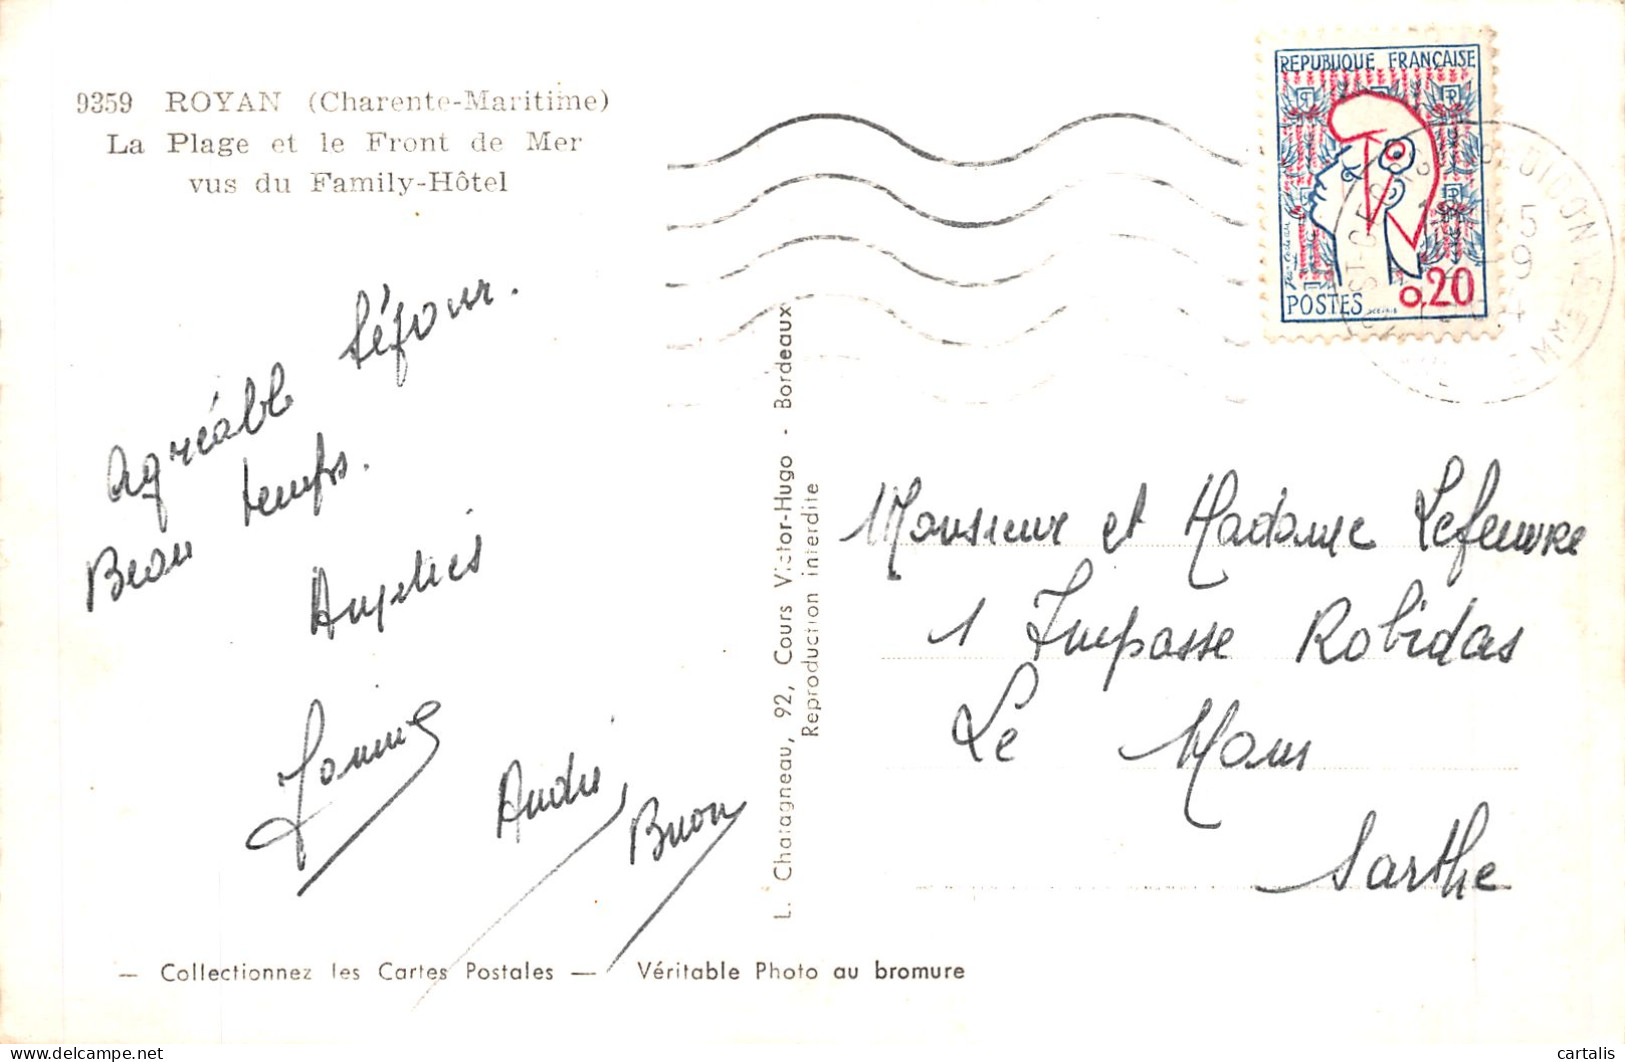 9359 ROYAN (Charente-Maritime)
La Plage et le Front de Mer
vus du Family-Hôtel
REPUBLIQUE FRANÇAISE
POSTES 0,20
Agréable séjour.
Beau temps.
Amitiés
André
L. Chatagneau, 92, Cours Victor-Hugo - Bordeaux
Reproduction interdite
Monsieur et Madame Lefeuvre
1 Impasse Robidas
Le Mans
Sarthe
— Collectionnez les Cartes Postales — Véritable Photo au bromure
cartalis